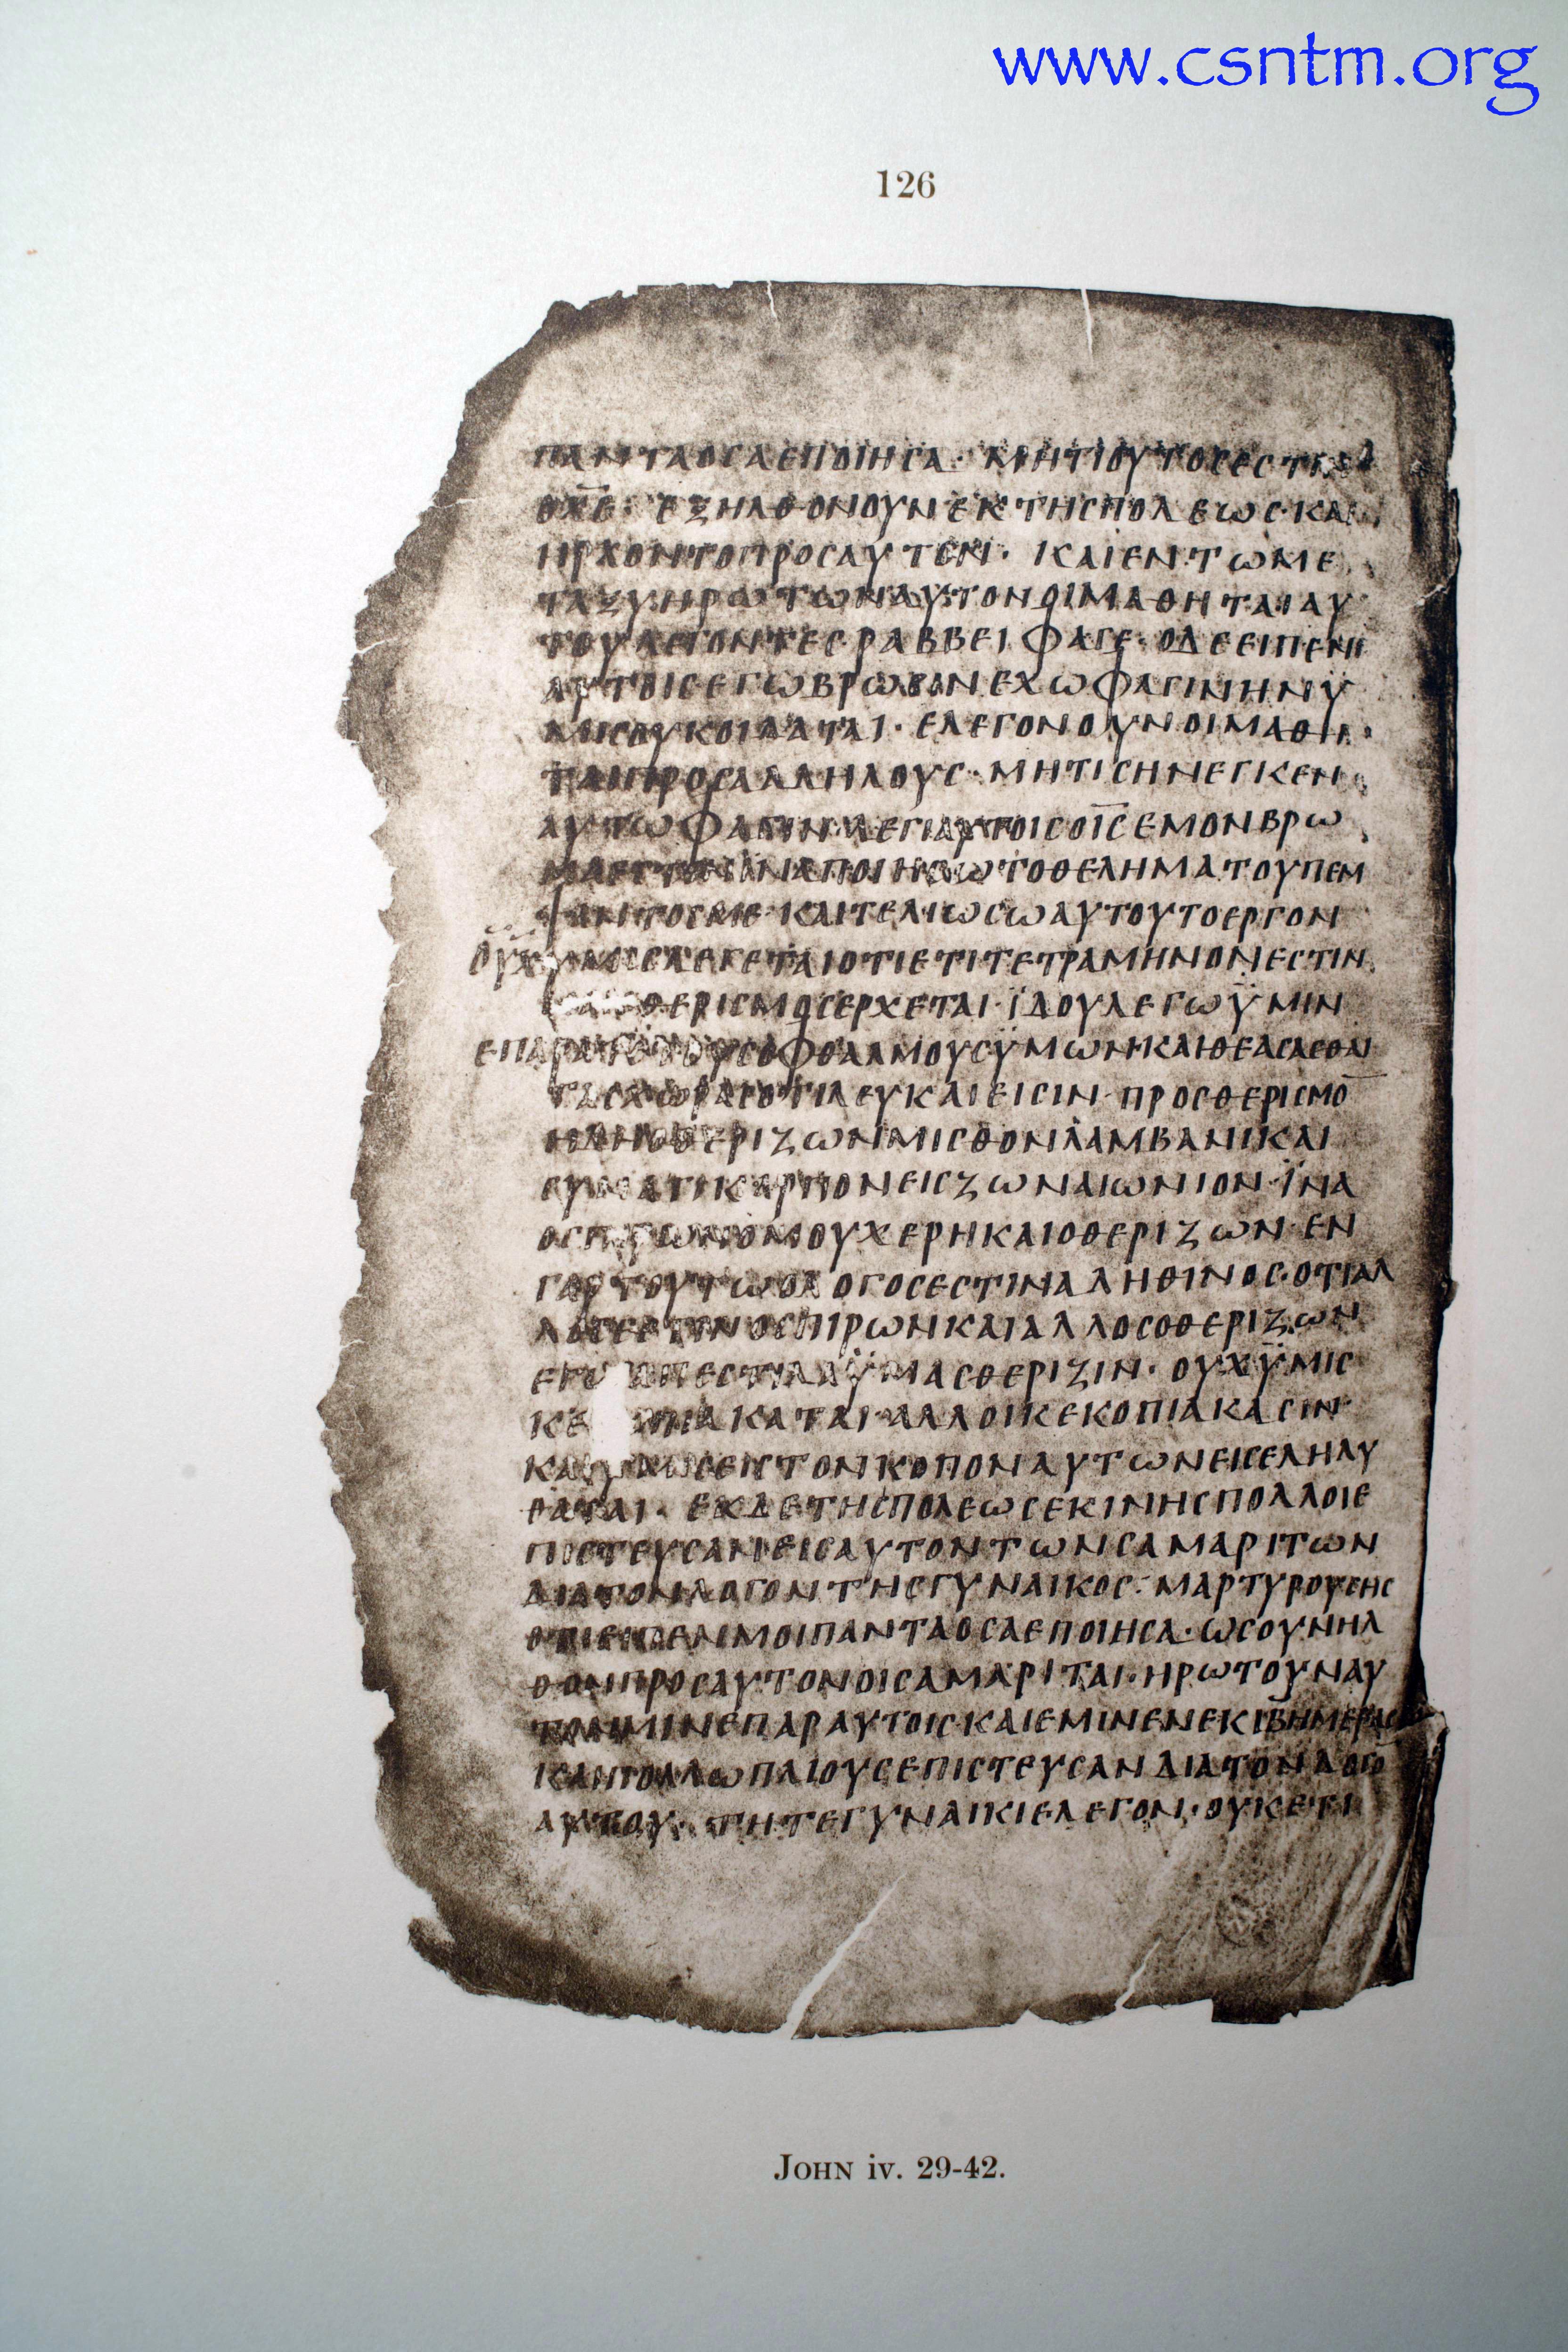 www.csntm.org
126
ΠΑΝΤΑΟϹΑΕΠΟΙΗϹΑ· ΜΗΤΙΟΥΤΟϹΕϹΤΙΝ
ΟΧ̅Ϲ̅· ΕΞΗΛΘΟΝΟΥΝΕΚΤΗϹΠΟΛΕωϹ·ΚΑΙ
ΗΡΧΟΝΤΟΠΡΟϹΑΥΤΟΝ· ΚΑΙΕΝΤωΜΕ
ΤΑΞΥΗΡωΤωΝΑΥΤΟΝΟΙΜΑΘΗΤΑΙΑΥ
ΤΟΥΛΕΓΟΝΤΕϹ·ΡΑΒΒΕΙΦΑΓΕ·ΟΔΕΕΙΠΕΝ
ΑΥΤΟΙϹΕΓωΒΡωϹΙΝΕΧωΦΑΓΙΝΗΝΫ
ΜΙϹΟΥΚΟΙΔΑΤΑΙ· ΕΛΕΓΟΝΟΥΝΟΙΜΑΘΗ
ΤΑΙΠΡΟϹΑΛΛΗΛΟΥϹ·ΜΗΤΙϹΗΝΕΓΚΕΝ
ΑΥΤωΦΑΓΙΝ·ΛΕΓΙΑΥΤΟΙϹΟΙ̅Ϲ̅ΕΜΟΝΒΡω
ΜΑΕϹΤΙΝΪΝΑΠΟΙΗϹωΤΟΘΕΛΗΜΑΤΟΥΠΕΜ
ΨΑΝΤΟϹΜΕ·ΚΑΙΤΕΛΙωϹωΑΥΤΟΥΤΟΕΡΓΟΝ
ΟΥΧΫΜΕΙϹΛΕΓΕΤΑΙΟΤΙΕΤΙΤΕΤΡΑΜΗΝΟΝΕϹΤΙΝ
ΘΕΡΙϹΜΟϹΕΡΧΕΤΑΙ·ΪΔΟΥΛΕΓωΫΜΙΝ
ΕΠΑΡΑΤΑΙΤΟΥϹΟΦΘΑΛΜΟΥϹΫΜωΝΚΑΙΘΕΑϹΑϹΘΑΙ
ΤΑϹΧωΡΑϹΟΤΙΛΕΥΚΑΙΕΙϹΙΝ·ΠΡΟϹΘΕΡΙϹΜΟ̅
ΗΔΗΟΘΕΡΙΖωΝΜΙϹΘΟΝΛΑΜΒΑΝΙΚΑΙ
ϹΥΝΑΓΙΚΑΡΠΟΝΕΙϹΖωΝΑΙωΝΙΟΝ·ΪΝΑ
ΟϹΠΙΡωΝΟΜΟΥΧΕΡΗΚΑΙΟΘΕΡΙΖωΝ·ΕΝ
ΓΑΡΤΟΥΤωΟΛΟΓΟϹΕϹΤΙΝΑΛΗΘΙΝΟϹ·ΟΤΙΑΛ
ΛΟϹΕϹΤΙΝΟϹΠΙΡωΝΚΑΙΑΛΛΟϹΟΘΕΡΙΖωΝ
ΕΓω ΑΠΕϹΤΙΛΑΫΜΑϹΘΕΡΙΖΙΝ· ΟΥΧΫΜΙϹ
ΚΕ ΠΙΑΚΑΤΑΙ·ΑΛΛΟΙΚΕΚΟΠΙΑΚΑϹΙΝ
ΚΑΙΫΜΙϹΕΙϹΤΟΝΚΟΠΟΝΑΥΤωΝΕΙϹΕΛΗΛΥ
ΘΑΤΑΙ· ΕΚΔΕΤΗϹΠΟΛΕωϹΕΚΙΝΗϹΠΟΛΛΟΙΕ
ΠΙϹΤΕΥϹΑΝΕΙϹΑΥΤΟΝΤωΝϹΑΜΑΡΙΤωΝ
ΔΙΑΤΟΝΛΟΓΟΝΤΗϹΓΥΝΑΙΚΟϹ·ΜΑΡΤΥΡΟΥϹΗϹ
ΟΤΙΕΙΠΕΝΜΟΙΠΑΝΤΑΟϹΑΕΠΟΙΗϹΑ·ωϹΟΥΝΗΛ
ΘΟΝΠΡΟϹΑΥΤΟΝΟΙϹΑΜΑΡΙΤΑΙ·ΗΡωΤΟΥΝΑΥ
ΤΟΝΜΙΝΕΠΑΡΑΥΤΟΙϹ·ΚΑΙΕΜΙΝΕΝΕΚΙΒ̅ΗΜΕΡΑϹ
ΚΑΙΠΟΛΛωΠΛΙΟΥϹΕΠΙϹΤΕΥϹΑΝΔΙΑΤΟΝΛΟΓΟ̅
ΑΥΤΟΥ· ΤΗΤΕΓΥΝΑΙΚΙΕΛΕΓΟΝ·ΟΥΚΕΤΙ
JOHN iv. 29-42.